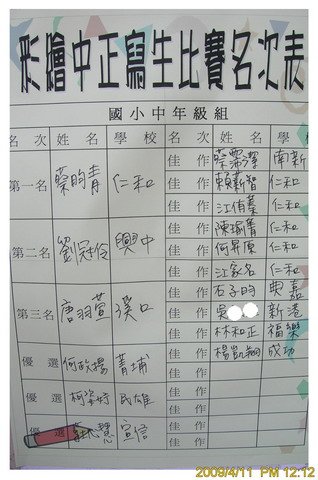 彩繪中正寫生比賽名次表
國小中年級組
名次 姓名 學校 名次 姓名 學校
第一名 蔡昀青 仁和
第二名 興中
第三名 唐羽萱 溪口
優選 何政揚 菁埔
優選 柯姿妤 民雄
優選 慧 宣信
佳作 南新
佳作 賴薪智 仁和
佳作 仁和
佳作 陳瑜菁 仁和
佳作 何昇原 仁和
佳作 江家名 仁和
佳作 石子昀 興嘉
佳作 新港
佳作 林和正 福樂
佳作 楊凱翔 成功
佳作
佳作
佳作
佳作
2009/4/11 PM 12:12